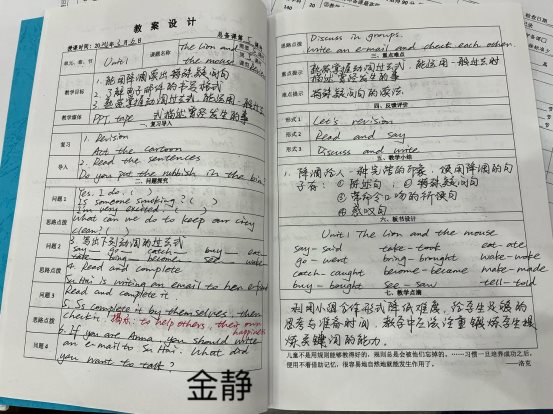 教案设计
总备课第
授课时间:
单元、章、节
Unit 1
课题名称
The lion and
the mouse
教学目标
1. 能用降调读出特殊疑问句
2. 了解电子邮件的书写格式
3. 熟练掌握动词过去式,能运用一般过去
式描述曾经发生的事
教学媒体
PPT, tape
一、复习导入
复习
1. Revision
Act the cartoon
导入
2. Read the sentences
Do you put the rubbish in the bin?
二、问题探究
问题1
Yes. I do. ( )
Is someone smoking? ( )
I'm very excited. ( )
思路点拨
What can we do to keep our city
clean? ( )
问题2
3. 写出下列动词的过去式
say— go— catch— buy— eat—
take— bring— become— see— wake—
思路点拨
4. Read and complete
问题3
Su Hai is writing an email to her friend
Read and complete it
思路点拨
5. Ss complete it by themselves, then
check it.
to help others, their own
happiness
问题4
6. If you are Anna, you should write
an e-mail to Su Hai. What did
you want to talk?
金静
思路点拨
Discuss in groups.
Write an e-mail and check each other.
三、重点难点
重点提示
熟练掌握动词过去式,能运用一般过去时
描述曾经发生的事
难点提示
特殊疑问句的读法
四、反馈评价
形式1
Let's revision
形式2
Read and say
形式3
Discuss and write
五、教学小结
1. 降调给人一种完结的印象,使用降调的句
子有: ① 陈述句; ② 特殊疑问句
③ 常命令口吻的祈使句
④ 感叹句
六、板书设计
Unit 1 The lion and the mouse
say—said take—took eat—ate
go—went bring—brought wake—woke
catch—caught become—became make—made
buy—bought see—saw tell—told
七、教学点滴
利用小组合作形式降低难度,给学生足够的
思考与准备时间,教学中应注重锻炼学生提
炼关键词的能力。
儿童不是用规则能够教得好的,规则总是会被他们忘掉的。……习惯一旦培养成功之后,
便用不着借助记忆,很容易地自然地就能发生作用了。
——洛克